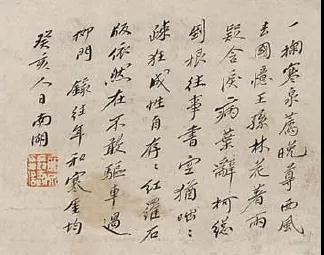 一掬寒泉薦晚尊西風
去國憶王孫林花著雨
疑含淚病葉辭柯總
根往事書空猶咄〻
疎狂成性自存〻紅羅石
版依然在不敢驅車過
柳門 錄往年和寒厓均
癸亥人日南湖